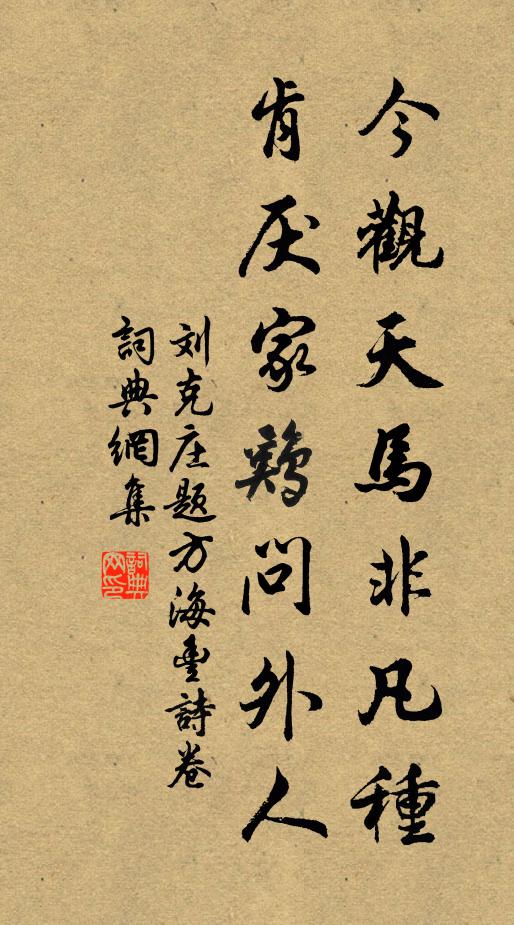 今觀天馬非凡種
肯厌家鷄問外人
刘克庄题方海豐詩卷
詞典網集
詞典網印